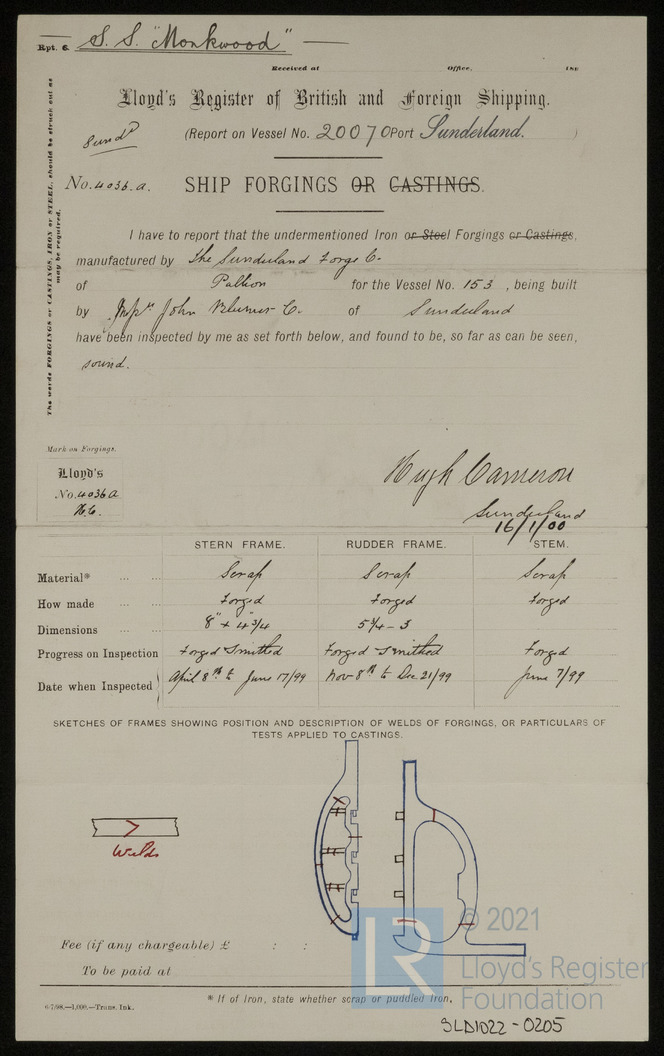 Rpt. 6. S. S. "Monkwood"
Received at Office, 189
Lloyd's Register of British and Foreign Shipping.
Sundd (Report on Vessel No. 20070 Port Sunderland. )
No. 4036.a. SHIP FORGINGS OR CASTINGS.
The words FORGINGS or CASTINGS, IRON or STEEL, should be struck out as may be required.
I have to report that the undermentioned Iron or Steel Forgings or Castings,
manufactured by The Sunderland Forge Co
of Pallion for the Vessel No. 153, being built
by Messrs John Blumer Co. of Sunderland
have been inspected by me as set forth below, and found to be, so far as can be seen,
sound.
Mark on Forgings.
Lloyd's
No. 4036a
H.C.
Hugh Cameron
Sunderland
16/1/00
STERN FRAME. RUDDER FRAME. STEM.
Material* ... ... Scrap Scrap Scrap
How made ... ... Forged Forged Forged
Dimensions ... ... 8" x 4 3/4" 5 3/4 - 3
Progress on Inspection Forged Smithed Forged Smithed Forged
Date when Inspected April 8th to June 17/99 Nov 8th to Dec 21/99 June 7/99
SKETCHES OF FRAMES SHOWING POSITION AND DESCRIPTION OF WELDS OF FORGINGS, OR PARTICULARS OF
TESTS APPLIED TO CASTINGS.
Welds
Fee (if any chargeable) £ : :
To be paid at
* If of Iron, state whether scrap or puddled Iron.
6/7/98.—1,000.—Trans. Ink.
LR
© 2021
Lloyd's Register
Foundation
SLD1022-0205